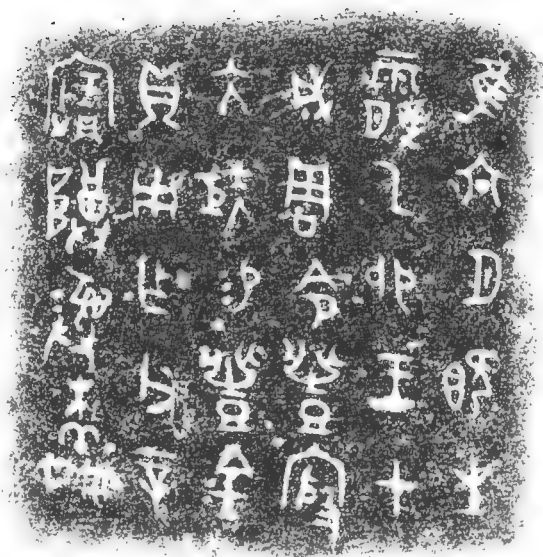 隹六月既生
霸乙卯王才
成周令豐殷
大矩易豐金
貝用乍父辛
寶尊彝木羊冊